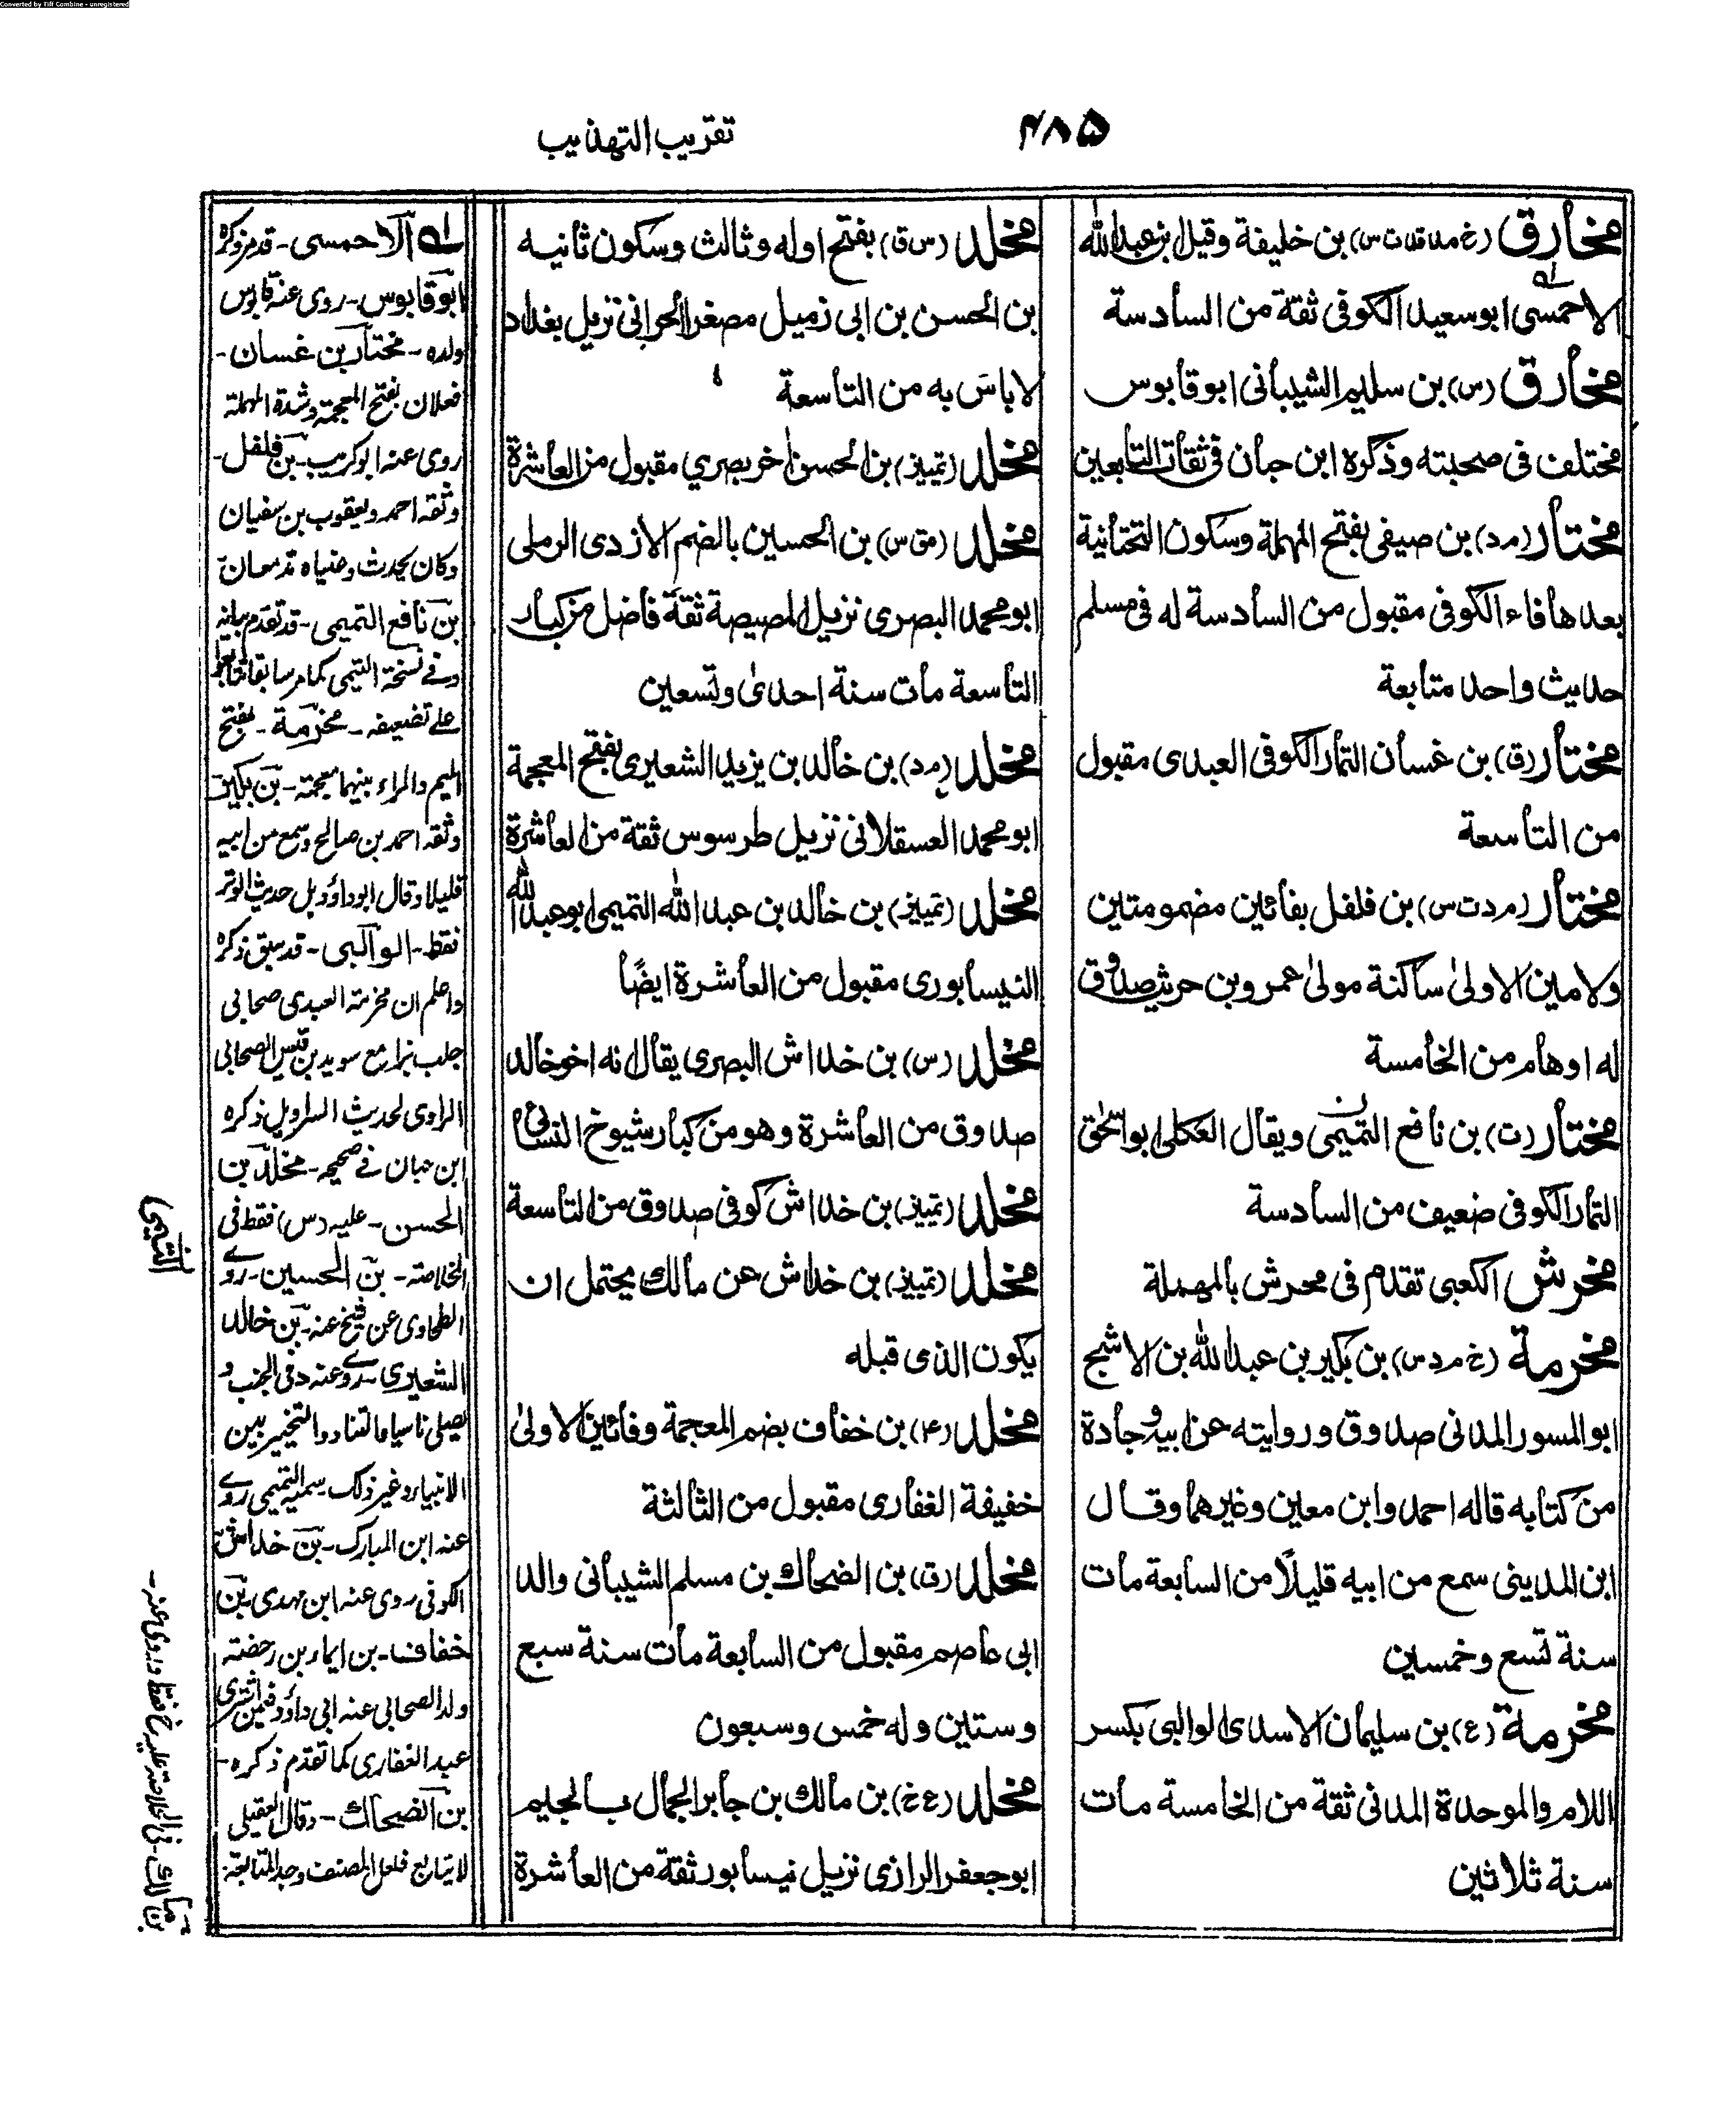 Converted by Tiff Combine - unregistered
۴۸۵
تقريب التهذيب
مخارق (خ مد قد ت س) بن خليفة وقيل بن عبد الله
الاحمسى ابو سعيد الكوفى ثقة من السادسة
مخارق (س) بن سليم الشيبانى ابو قابوس
مختلف فى صحبته وذكره ابن حبان فى ثقات التابعين
مختار (م د) بن صيفى بفتح المهملة وسكون التحتانية
بعدها فاء الكوفى مقبول من السادسة له فى مسلم
حديث واحد متابعة
مختار (ق) بن غسان التمار الكوفى العبدى مقبول
من التاسعة
مختار (م د ت س) بن فلفل بفائين مضمومتين
ولامين الاولىٰ ساكنة مولىٰ عمرو بن حريث صدوق
له اوهام من الخامسة
مختار (ت) بن نافع التميمى ويقال العكلى ابو اسحٰق
التمار الكوفى ضعيف من السادسة
مخرش الكعبى تقدم فى محرش بالمهملة
مخرمة (خ م د س) بن بكير بن عبد الله بن الاشج
ابو المسور المدنى صدوق وروايته عن ابيه وجادة
من كتابه قاله احمد وابن معين وغيرهما وقال
ابن المدينى سمع من ابيه قليلًا من السابعة مات
سنة تسع وخمسين
مخرمة (ع) بن سليمان الاسدى الوالبى بكسر
اللام والموحدة المدنى ثقة من الخامسة مات
سنة ثلاثين
مخلد (س ق) بفتح اوله وثالث وسكون ثانيه
بن الحسن بن ابى زميل مصغر الحرانى نزيل بغداد
لا باس به من التاسعة
مخلد (تمييز) بن الحسن اخر بصري مقبول من العاشرة
مخلد (مق س) بن الحسين بالضم الازدى الرملى
ابو محمد البصرى نزيل المصيصة ثقة فاضل من كبار
التاسعة مات سنة احدىٰ وتسعين
مخلد (م د) بن خالد بن يزيد الشعيرى بفتح المعجمة
ابو محمد العسقلانى نزيل طرسوس ثقة من العاشرة
مخلد (تمييز) بن خالد بن عبد الله التميمى ابو عبد الله
النيسابورى مقبول من العاشرة ايضًا
مخلد (س) بن خداش البصرى يقال انه اخو خالد
صدوق من العاشرة وهو من كبار شيوخ النسائى
مخلد (تمييز) بن خداش كوفى صدوق من التاسعة
مخلد (تمييز) بن خداش عن مالك يحتمل ان
يكون الذى قبله
مخلد (۴) بن خفاف بضم المعجمة وفائين الاولىٰ
خفيفة الغفارى مقبول من الثالثة
مخلد (ق) بن الضحاك بن مسلم الشيبانى والد
ابى عاصم مقبول من السابعة مات سنة سبع
وستين وله خمس وسبعون
مخلد (عخ) بن مالك بن جابر الجمال بالجيم
ابو جعفر الرازى نزيل نيسابور ثقة من العاشرة
له الاحمسى - قد مر ذكره
ابو قابوس - روى عنه قابوس
ولده - مختار بن غسان -
فعلان بفتح المعجمة وشدة المهملة
روى عنه ابو كريب - بن فلفل -
وثقه احمد ويعقوب بن سفيان
وكان يحدث وعيناه تدمعان
بن نافع التميمى - قد تقدم بيانه
وفى نسخة التيمى كما مر سابقا
على تضعيفه - مخرمة - بفتح
الميم والراء بينهما معجمة - بن بكير -
وثقه احمد بن صالح وسمع من ابيه
قليلا وقال ابو داؤد بل حديث الوتر
فقط - الوالبى - قد سبق ذكره
واعلم ان مخرمة العبدى صحابى
جلب بزا مع سويد بن قيس الصحابى
الراوى لحديث السراويل ذكره
ابن حبان فى صحيحه - مخلد بن
الحسن - عليه (س) فقط فى
الخلاصة - بن الحسين - روى
الطحاوى عن فتح عنه - بن خالد
الشعيرى - روى عنه د فى الجنب
يصلى ناسيا والتخيير بين
الانبياء وغير ذلك - سميه التميمى روى
عنه ابن المبارك - بن خداش
الكوفى روى عنه ابن مهدى بن
خفاف - بن ايماء بن رحضة
ولد الصحابى عنه ابى داؤد فيمن اشترى
عبدا الغفارى كما تقدم ذكره -
بن الضحاك - وقال العقيلى
لا يتابع فلعل المصنف وجد المتابعة
بن مالك - فى الخلاصة عليه خ فقط وروى عنه -
التيمى